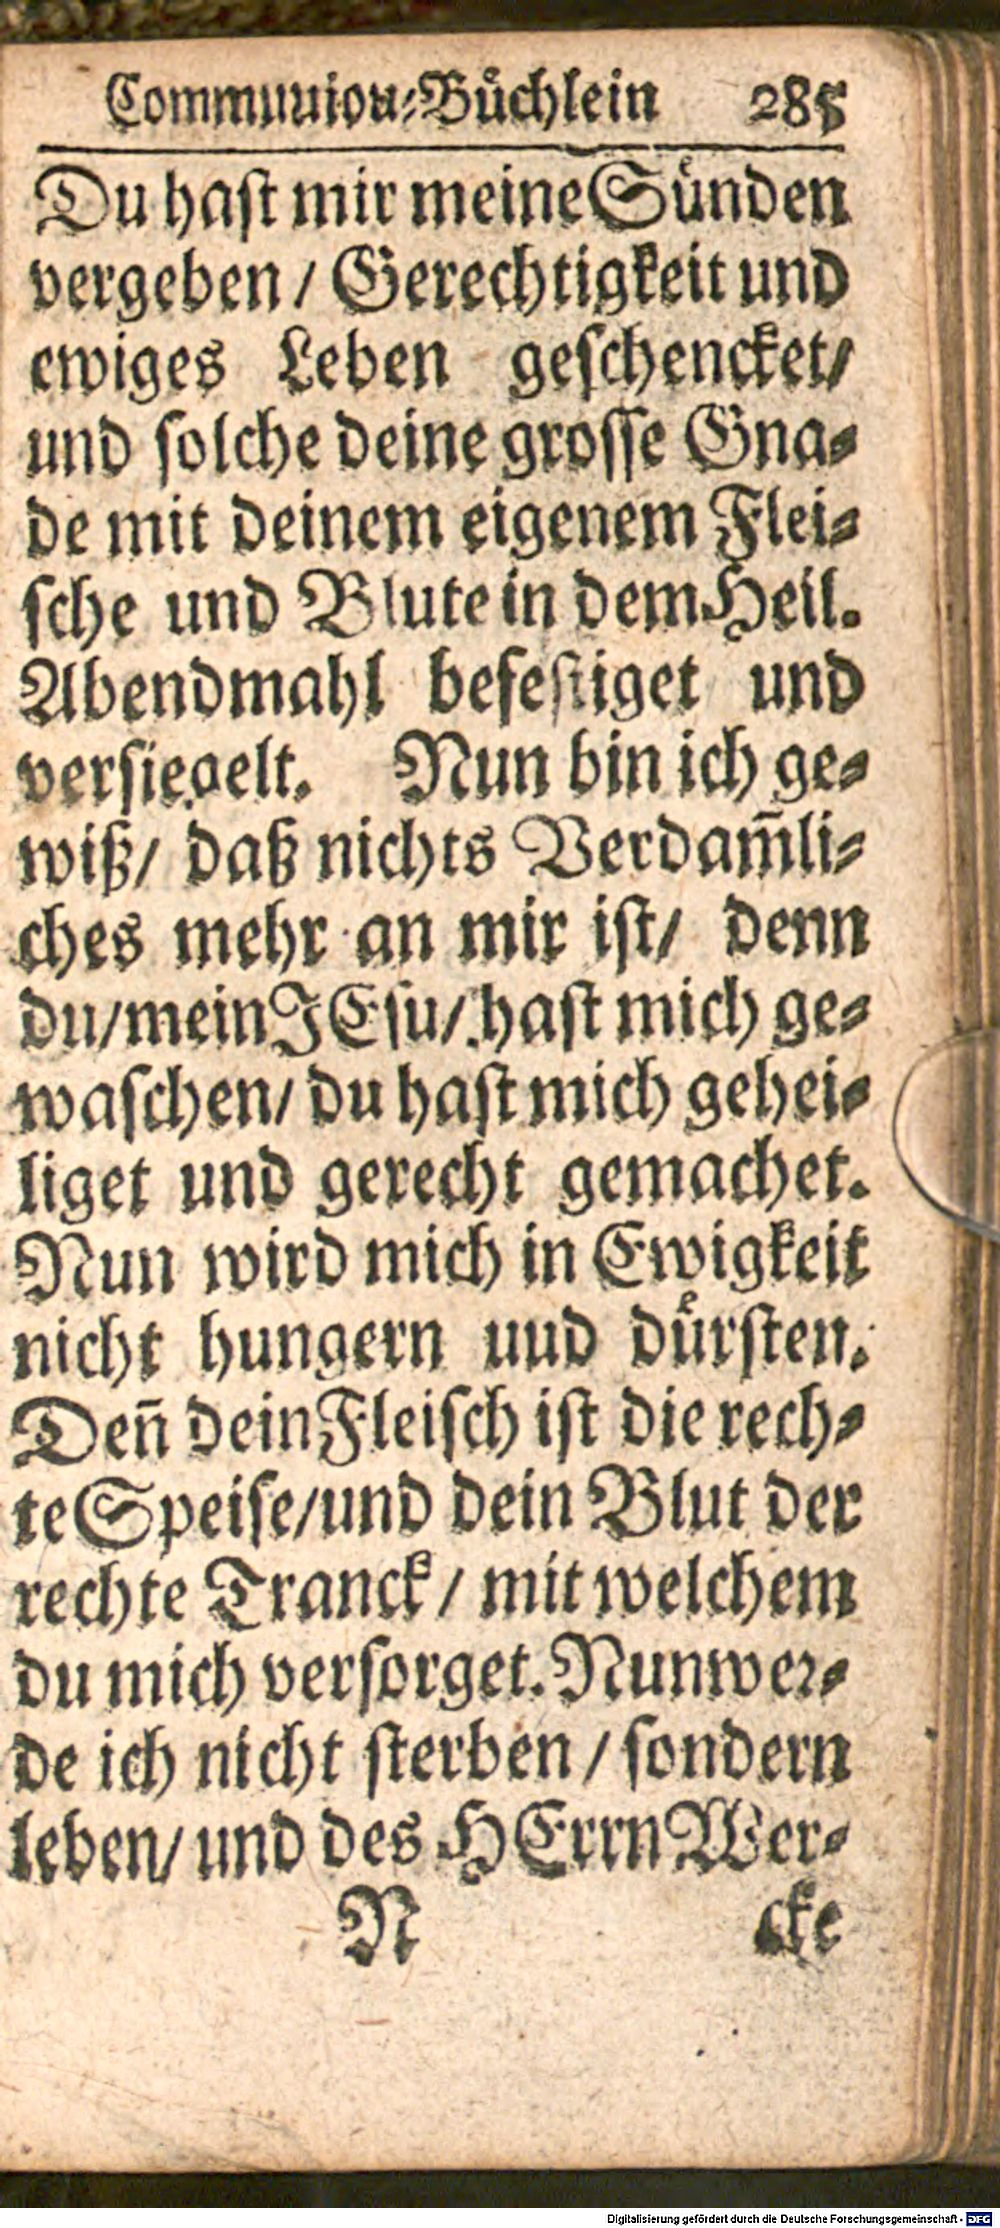 Communion⸗Buͤchlein 285
Du haſt mir meine Suͤnden
vergeben / Gerechtigkeit und
ewiges Leben geſchencket/
und ſolche deine groſſe Gna⸗
de mit deinem eigenem Flei⸗
ſche und Blute in dem Heil.
Abendmahl befeſtiget und
verſiegelt. Nun bin ich ge⸗
wiß/ daß nichts Verdam̃li⸗
ches mehr an mir iſt/ denn
du/mein JEſu/ haſt mich ge⸗
waſchen/ du haſt mich gehei⸗
liget und gerecht gemachet.
Nun wird mich in Ewigkeit
nicht hungern uud duͤrſten.
Deñ dein Fleiſch iſt die rech⸗
te Speiſe/und dein Blut der
rechte Tranck / mit welchem
du mich verſorget. Nun wer⸗
de ich nicht ſterben / ſondern
leben/ und des HErrn Wer⸗
N cke
Digitalisierung gefördert durch die Deutsche Forschungsgemeinschaft - DFG